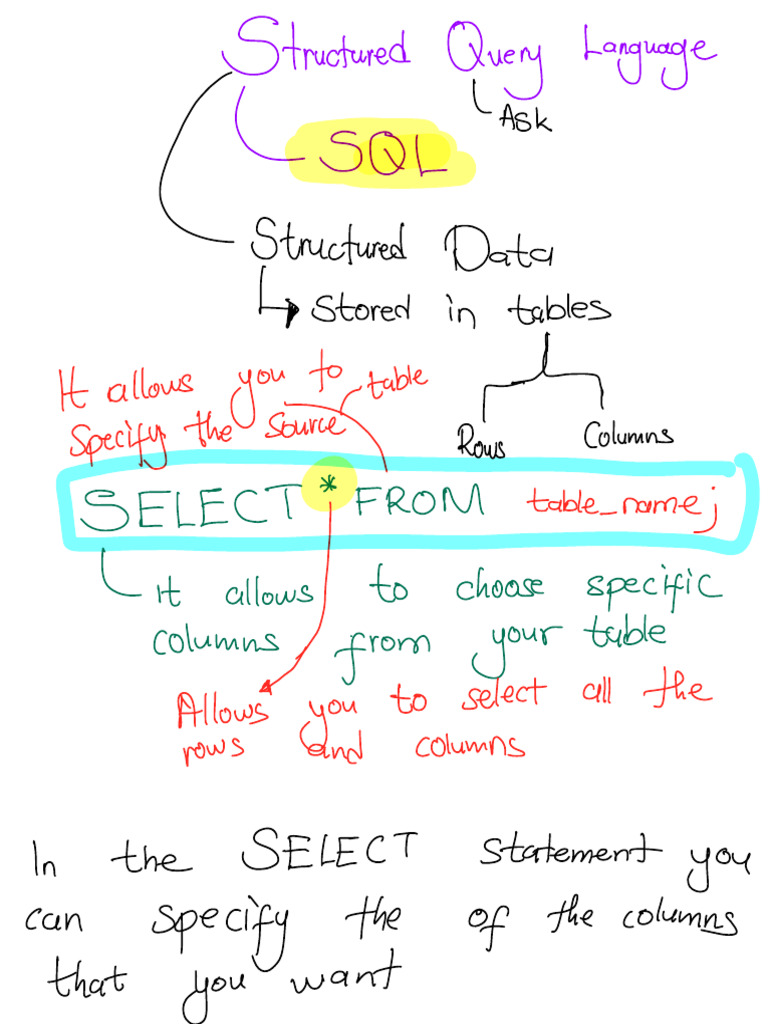 Structured Query Language
Ask
SQL
Structured Data
Stored in tables
Rows
Columns
It allows you to
Specify the source
table
SELECT * FROM table_name;
It allows to choose specific
columns from your table
Allows you to select all the
rows and columns
In the SELECT statement you
can specify the of the columns
that you want